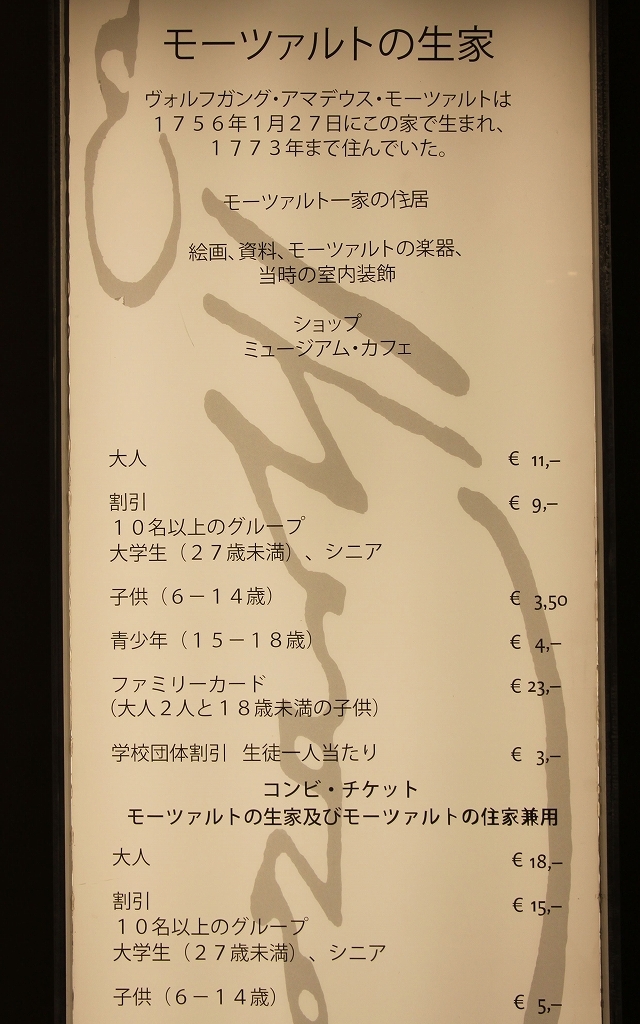 モーツァルトの生家
ヴォルフガング・アマデウス・モーツァルトは
１７５６年１月２７日にこの家で生まれ、
１７７３年まで住んでいた。
モーツァルト一家の住居
絵画、資料、モーツァルトの楽器、
当時の室内装飾
ショップ
ミュージアム・カフェ
大人 € 11,–
割引 € 9,–
１０名以上のグループ
大学生（２７歳未満）、シニア
子供（６－１４歳） € 3,50
青少年（１５－１８歳） € 4,–
ファミリーカード € 23,–
（大人２人と１８歳未満の子供）
学校団体割引 生徒一人当たり € 3,–
コンビ・チケット
モーツァルトの生家及びモーツァルトの住家兼用
大人 € 18,–
割引 € 15,–
１０名以上のグループ
大学生（２７歳未満）、シニア
子供（６－１４歳） € 5,–